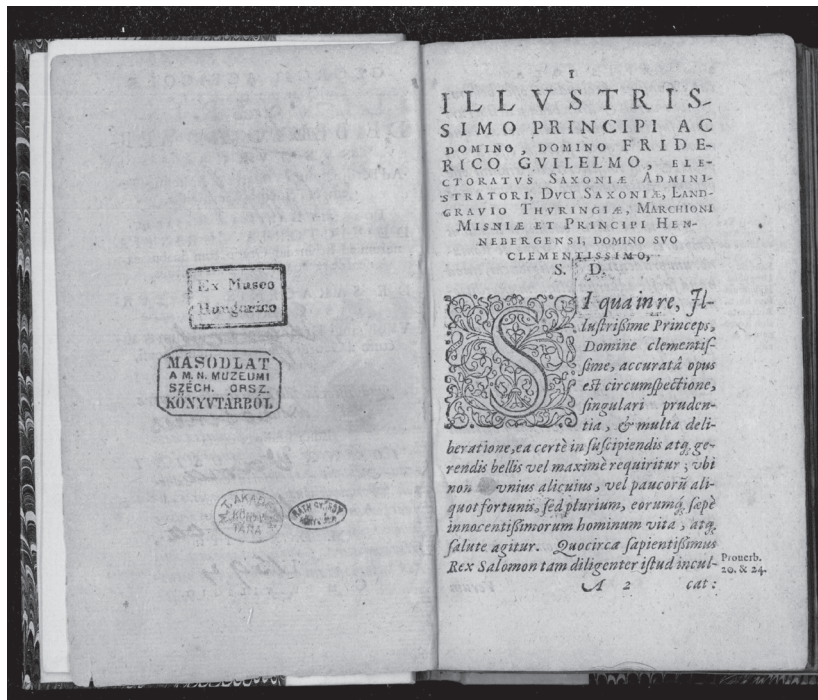 Ex Museo
Hungarico
MÁSODLAT
A M. N. MUZEUMI
SZÉCH. ORSZ.
KÖNYVTÁRBÓL
M. T. AKADÉMIA
KÖNYV
TÁRA
RÁTH GYÖRGY
I
ILLVSTRIS-
SIMO PRINCIPI AC
DOMINO, DOMINO FRIDE-
RICO GVILELMO, ELE-
CTORATVS SAXONIÆ ADMINI-
STRATORI, DVCI SAXONIÆ, LAND-
GRAVIO THVRINGIÆ, MARCHIONI
MISNIÆ ET PRINCIPI HEN-
NEBERGENSI, DOMINO SVO
CLEMENTISSIMO,
S. D.
SI qua in re, Il-
lustrißime Princeps,
Domine clementis-
sime, accuratâ opus
est circumspectione,
singulari pruden-
tia, & multa deli-
beratione, ea certè in suscipiendis atq; ge-
rendis bellis vel maximè requiritur; vbi
non vnius alicuius, vel paucorũ ali-
quot fortunis, sed plurium, eorumq; sæpè
innocentißimorum hominum vita, atq;
salute agitur. Quocirca sapientißimus
Rex Salomon tam diligenter istud incul-
Prouerb.
20. & 24.
A 2 cat: